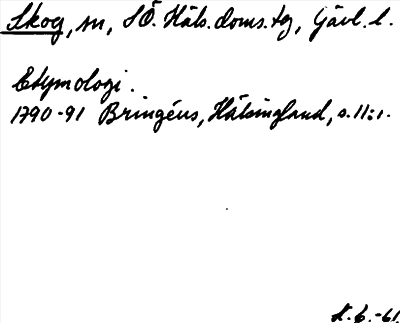 Skog, sn, SÖ. Häls. doms. tg, Gävl. l.
Etymologi.
1790-91 Bringéus, Hälsingland, s. 11:1.
K. G. -61.